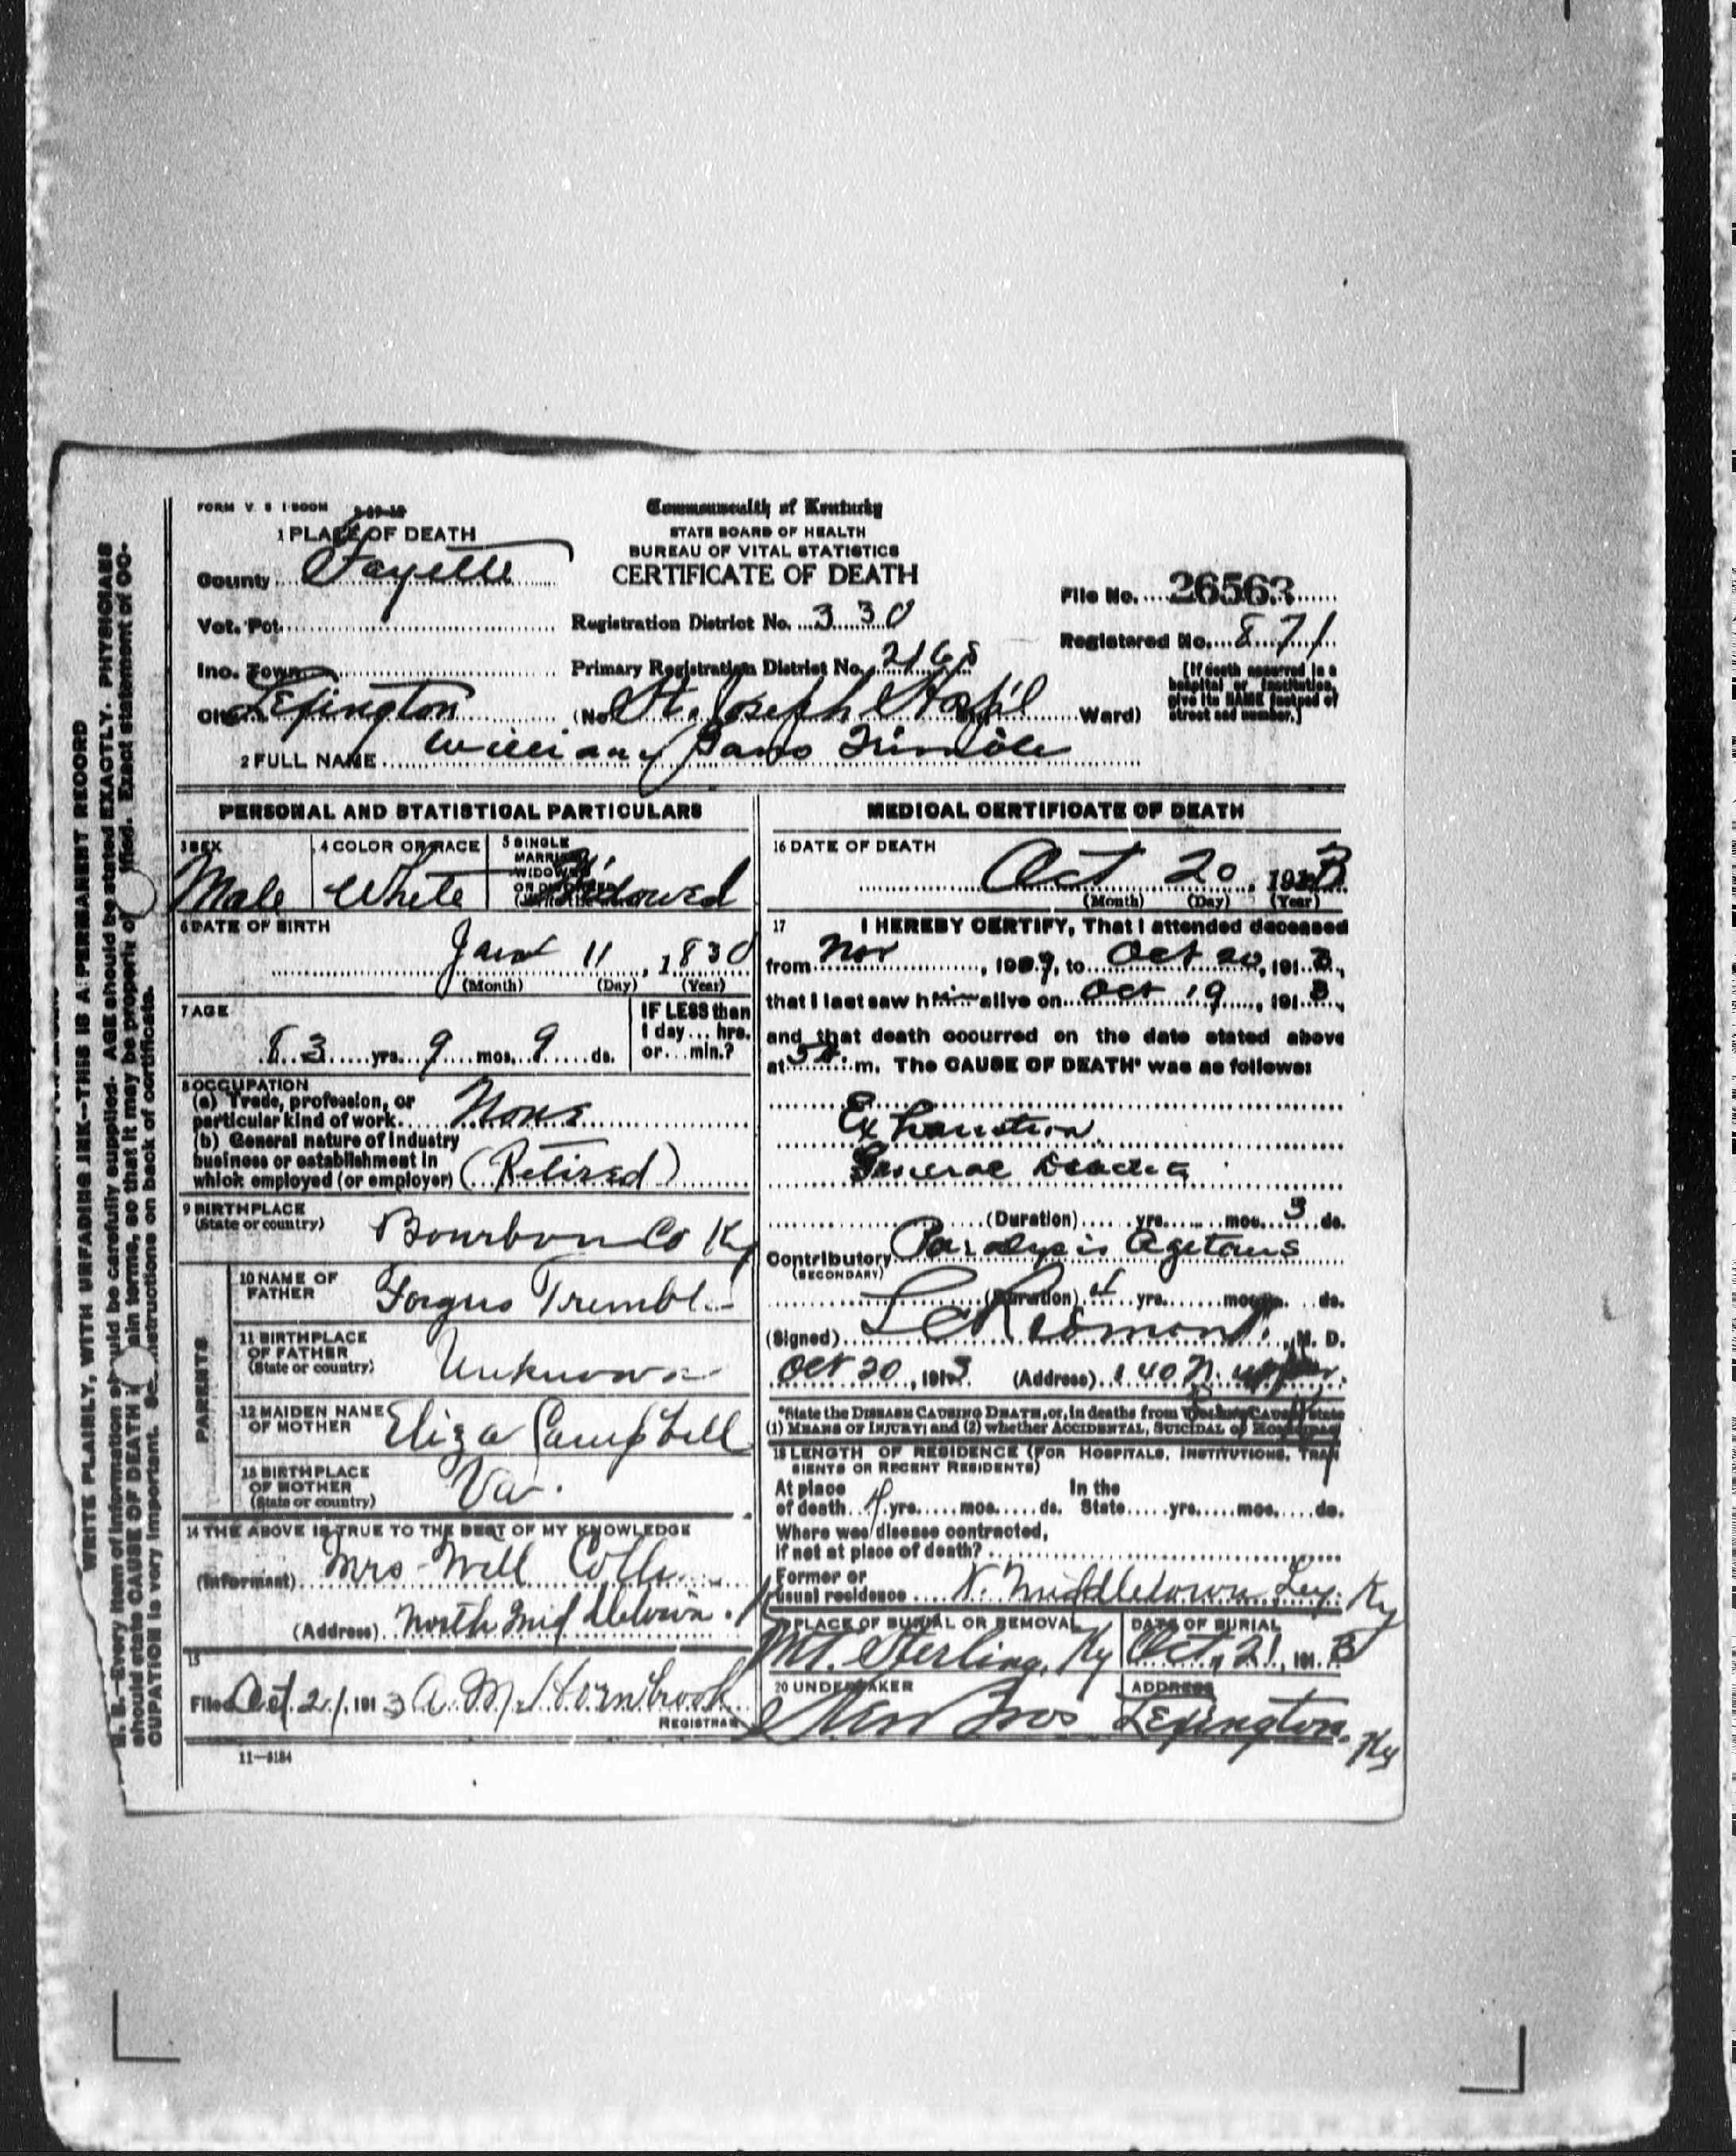 FORM V. S 1-500M
Commonwealth of Kentucky
STATE BOARD OF HEALTH
BUREAU OF VITAL STATISTICS
CERTIFICATE OF DEATH
1 PLACE OF DEATH
County Fayette
Vot. Pct.
Inc. Town
City Lexington
Registration District No. 330
Primary Registration District No. 2168
(No. St. Joseph Hosp'l Ward)
File No. 26563
Registered No. 871
[If death occurred in a
hospital or institution,
give its NAME instead of
street and number.]
2 FULL NAME William Trimble
PERSONAL AND STATISTICAL PARTICULARS
3 SEX
Male
4 COLOR OR RACE
White
5 SINGLE
MARRIED
WIDOWED
OR DIVORCED
Widowed
6 DATE OF BIRTH
Jan 11, 1830
(Month) (Day) (Year)
7 AGE
83 yrs. 9 mos. 9 ds.
IF LESS than
1 day... hrs.
or... min.?
8 OCCUPATION
(a) Trade, profession, or
particular kind of work None
(b) General nature of industry
business or establishment in
which employed (or employer) (Retired)
9 BIRTHPLACE
(State or country)
Bourbon Co Ky
PARENTS
10 NAME OF
FATHER
Fergus Trimble
11 BIRTHPLACE
OF FATHER
(State or country)
Unknown
12 MAIDEN NAME
OF MOTHER
Eliza Campbell
13 BIRTHPLACE
OF MOTHER
(State or country)
Va.
14 THE ABOVE IS TRUE TO THE BEST OF MY KNOWLEDGE
(Informant) Mrs Will
(Address) North Middletown.
15
Filed Oct. 21, 1913 A. M. Hornbrook
REGISTRAR
11—5184
MEDICAL CERTIFICATE OF DEATH
16 DATE OF DEATH
Oct 20, 1913
(Month) (Day) (Year)
17 I HEREBY CERTIFY, That I attended deceased
from Nov, 1909, to Oct 20, 1913,
that I last saw him alive on Oct 19, 1913,
and that death occurred on the date stated above
at m. The CAUSE OF DEATH* was as follows:
Exhaustion
General
(Duration) yrs. mos. 3 ds.
Contributory Paralysis Agitans
(SECONDARY)
(Duration) yrs. mos. ds.
(Signed) Redmond, M. D.
Oct 20, 1913 (Address) 140 N. Upper
*State the DISEASE CAUSING DEATH, or, in deaths from VIOLENT CAUSES, state
(1) MEANS OF INJURY; and (2) whether ACCIDENTAL, SUICIDAL or HOMICIDAL
18 LENGTH OF RESIDENCE (FOR HOSPITALS, INSTITUTIONS, TRAN
SIENTS OR RECENT RESIDENTS)
At place In the
of death 4 yrs. mos. ds. State yrs. mos. ds.
Where was disease contracted,
if not at place of death?
Former or
usual residence N. Middletown Ky
19 PLACE OF BURIAL OR REMOVAL
Mt. Sterling, Ky
DATE OF BURIAL
Oct. 21, 1913
20 UNDERTAKER
Bros
ADDRESS
Lexington. Ky
WRITE PLAINLY, WITH UNFADING INK—THIS IS A PERMANENT RECORD
N. B.—Every item of information should be carefully supplied. AGE should be stated EXACTLY. PHYSICIANS
should state CAUSE OF DEATH in plain terms, so that it may be properly classified. Exact statement of OC-
CUPATION is very important. See instructions on back of certificate.